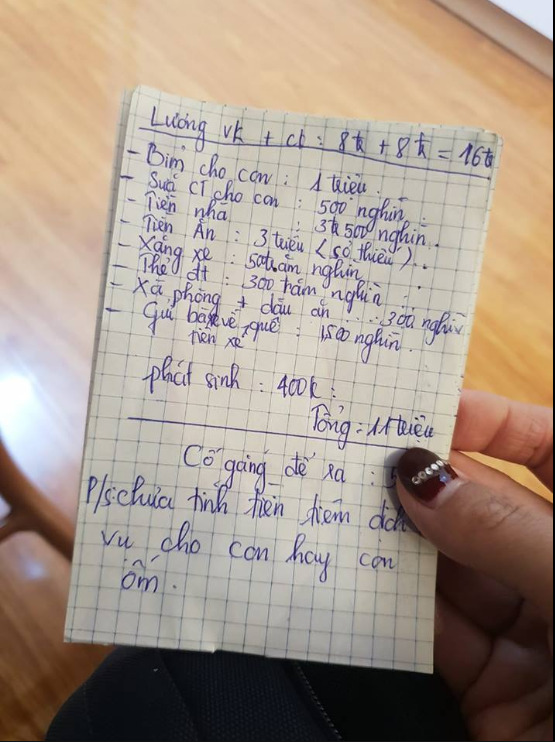 Lương vk + ck: 8tr + 8tr = 16tr
- Bỉm cho con : 1 triệu.
- Sữa CT cho con : 500 nghìn.
- Tiền nhà : 3tr 500 nghìn.
- Tiền Ăn : 3 triệu (sơ thiểu).
- Xăng xe : 500 trăm nghìn.
- Thẻ đt : 300 trăm nghìn.
- Xà phòng + dầu ăn ... 300 nghìn
- Gửi bà về quê : 1500 nghìn.
tiền xe
phát sinh : 400k :
Tổng = 11 triệu
Cố gắng để ra :
P/s: chưa tính tiền tiêm dịch
vụ cho con hay con
ốm.